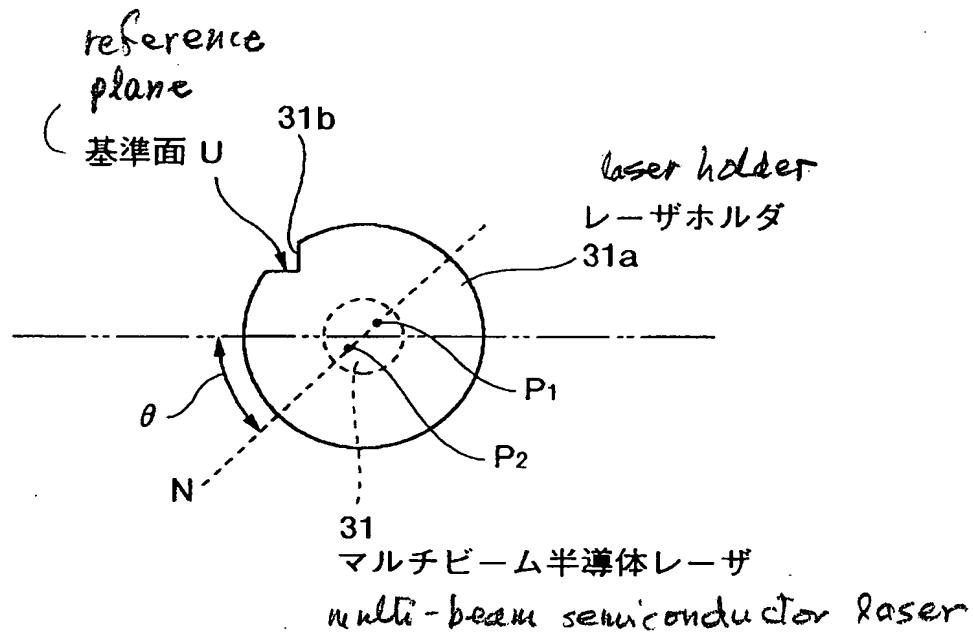 reference
plane
31b
基準面 U
laser holder
レーザホルダ
31a
P1
θ
P2
N
31
マルチビーム半導体レーザ
multi-beam semiconductor laser